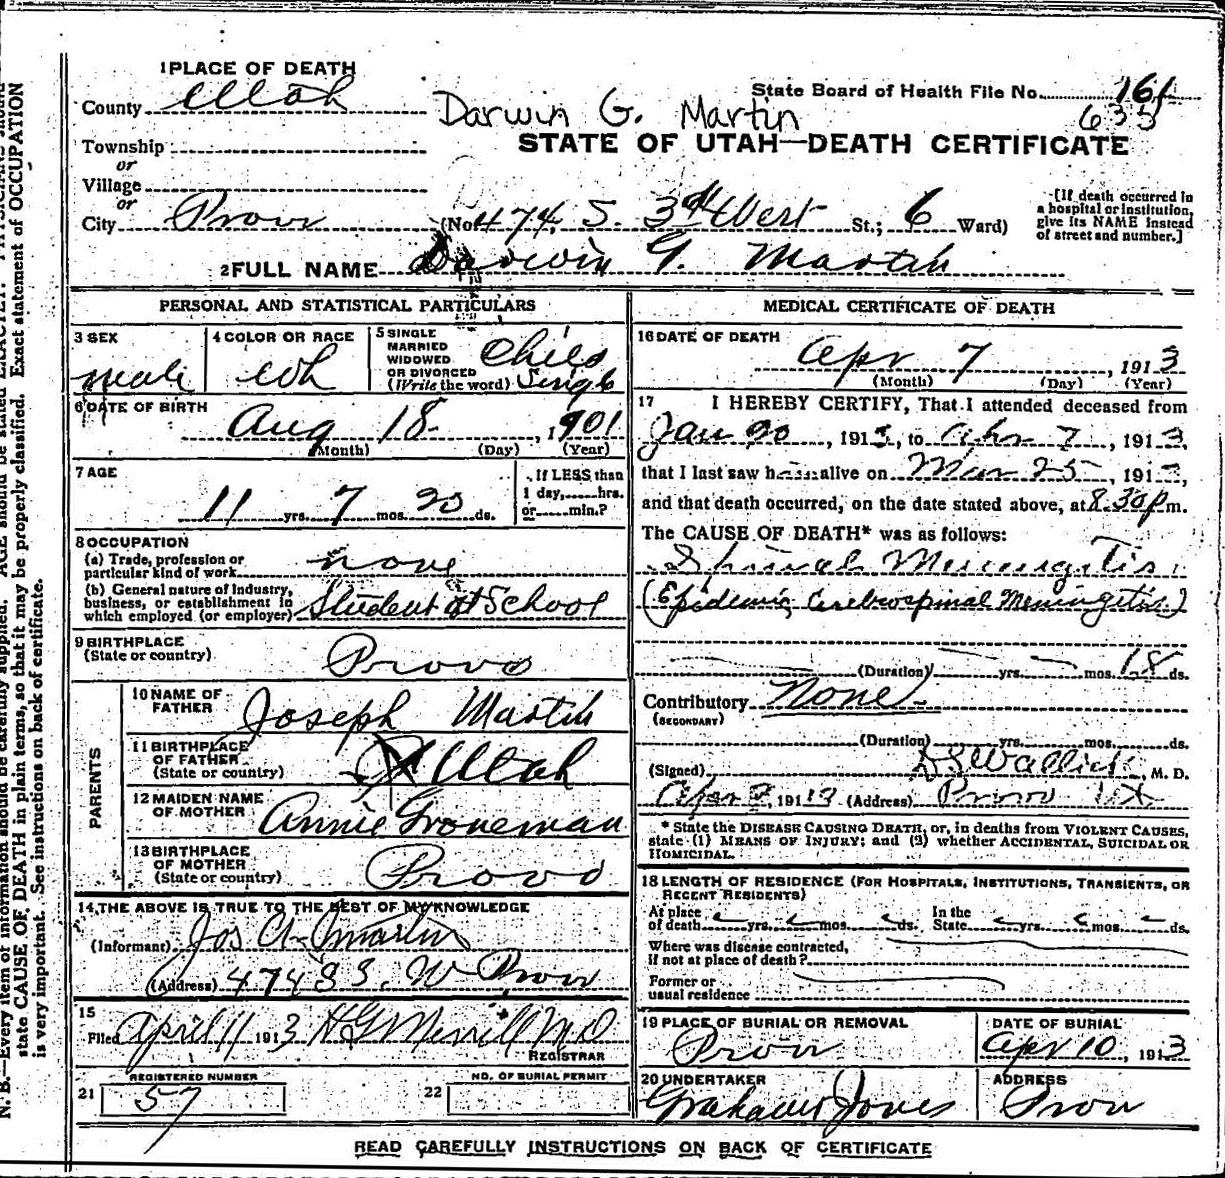 1 PLACE OF DEATH
County Utah
Darwin G. Martin
State Board of Health File No. 161
635
STATE OF UTAH—DEATH CERTIFICATE
Township
or
Village
or
City Provo (No. 474, S. 3rd West St.; 6 Ward)
[If death occurred in a hospital or institution, give its NAME instead of street and number.]
2 FULL NAME Darwin G. Martin
PERSONAL AND STATISTICAL PARTICULARS
3 SEX male
4 COLOR OR RACE wh
5 SINGLE MARRIED WIDOWED OR DIVORCED (Write the word) Child Single
6 DATE OF BIRTH
Aug 18, 1901
(Month) (Day) (Year)
7 AGE
11 yrs. 7 mos. 20 ds.
If LESS than 1 day, hrs. or min.?
8 OCCUPATION
(a) Trade, profession or particular kind of work none
(b) General nature of industry, business, or establishment in which employed (or employer) Student at School
9 BIRTHPLACE
(State or country) Provo
PARENTS
10 NAME OF FATHER Joseph Martin
11 BIRTHPLACE OF FATHER (State or country) Utah
12 MAIDEN NAME OF MOTHER Annie Groneman
13 BIRTHPLACE OF MOTHER (State or country) Provo
14 THE ABOVE IS TRUE TO THE BEST OF MY KNOWLEDGE
(Informant) Jos A Martin
(Address) 474 S 3. W Provo
15
Filed April 11 1913 H G Merrill M D
REGISTRAR
REGISTERED NUMBER
21 57
NO. OF BURIAL PERMIT
22
MEDICAL CERTIFICATE OF DEATH
16 DATE OF DEATH
Apr 7, 1913
(Month) (Day) (Year)
17 I HEREBY CERTIFY, That I attended deceased from
Jan 20, 1913, to Apr 7, 1913,
that I last saw him alive on Mar 25, 1913,
and that death occurred, on the date stated above, at 8.30 p m.
The CAUSE OF DEATH* was as follows:
Spinal Meningitis.
(Epidemic Cerebrospinal Meningitis)
(Duration) yrs. mos. 18 ds.
Contributory None
(SECONDARY)
(Duration) yrs. mos. ds.
(Signed) , M. D.
Apr 1913 (Address) Provo Ut
* State the DISEASE CAUSING DEATH, or, in deaths from VIOLENT CAUSES, state (1) MEANS OF INJURY; and (2) whether ACCIDENTAL, SUICIDAL OR HOMICIDAL.
18 LENGTH OF RESIDENCE (FOR HOSPITALS, INSTITUTIONS, TRANSIENTS, OR RECENT RESIDENTS)
At place of death yrs. mos. ds. In the State yrs. mos. ds.
Where was disease contracted, If not at place of death?
Former or usual residence
19 PLACE OF BURIAL OR REMOVAL
Provo
DATE OF BURIAL
Apr 10, 1913
20 UNDERTAKER
Jones
ADDRESS
Provo
READ CAREFULLY INSTRUCTIONS ON BACK OF CERTIFICATE
N. B.—Every item of information should be carefully supplied. AGE should be stated EXACTLY. PHYSICIANS should
state CAUSE OF DEATH in plain terms, so that it may be properly classified. Exact statement of OCCUPATION
is very important. See instructions on back of certificate.